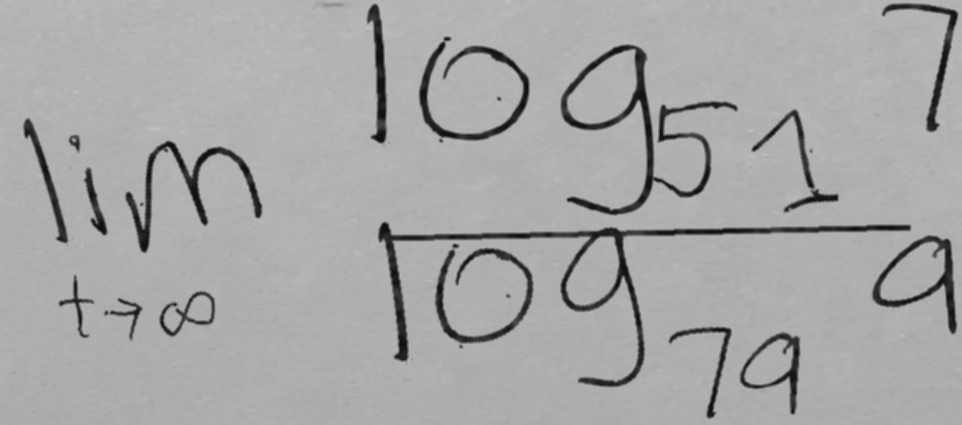 lim t→∞ log_{51} 7 / log_{79} 9